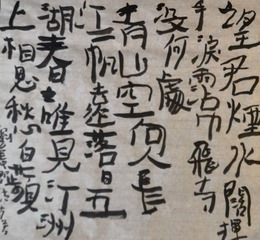 望君煙水闊揮
手淚霑巾飛鳥
沒何處
青山空向人長
江一帆遠落日五
湖春誰見汀洲
上相思愁白蘋